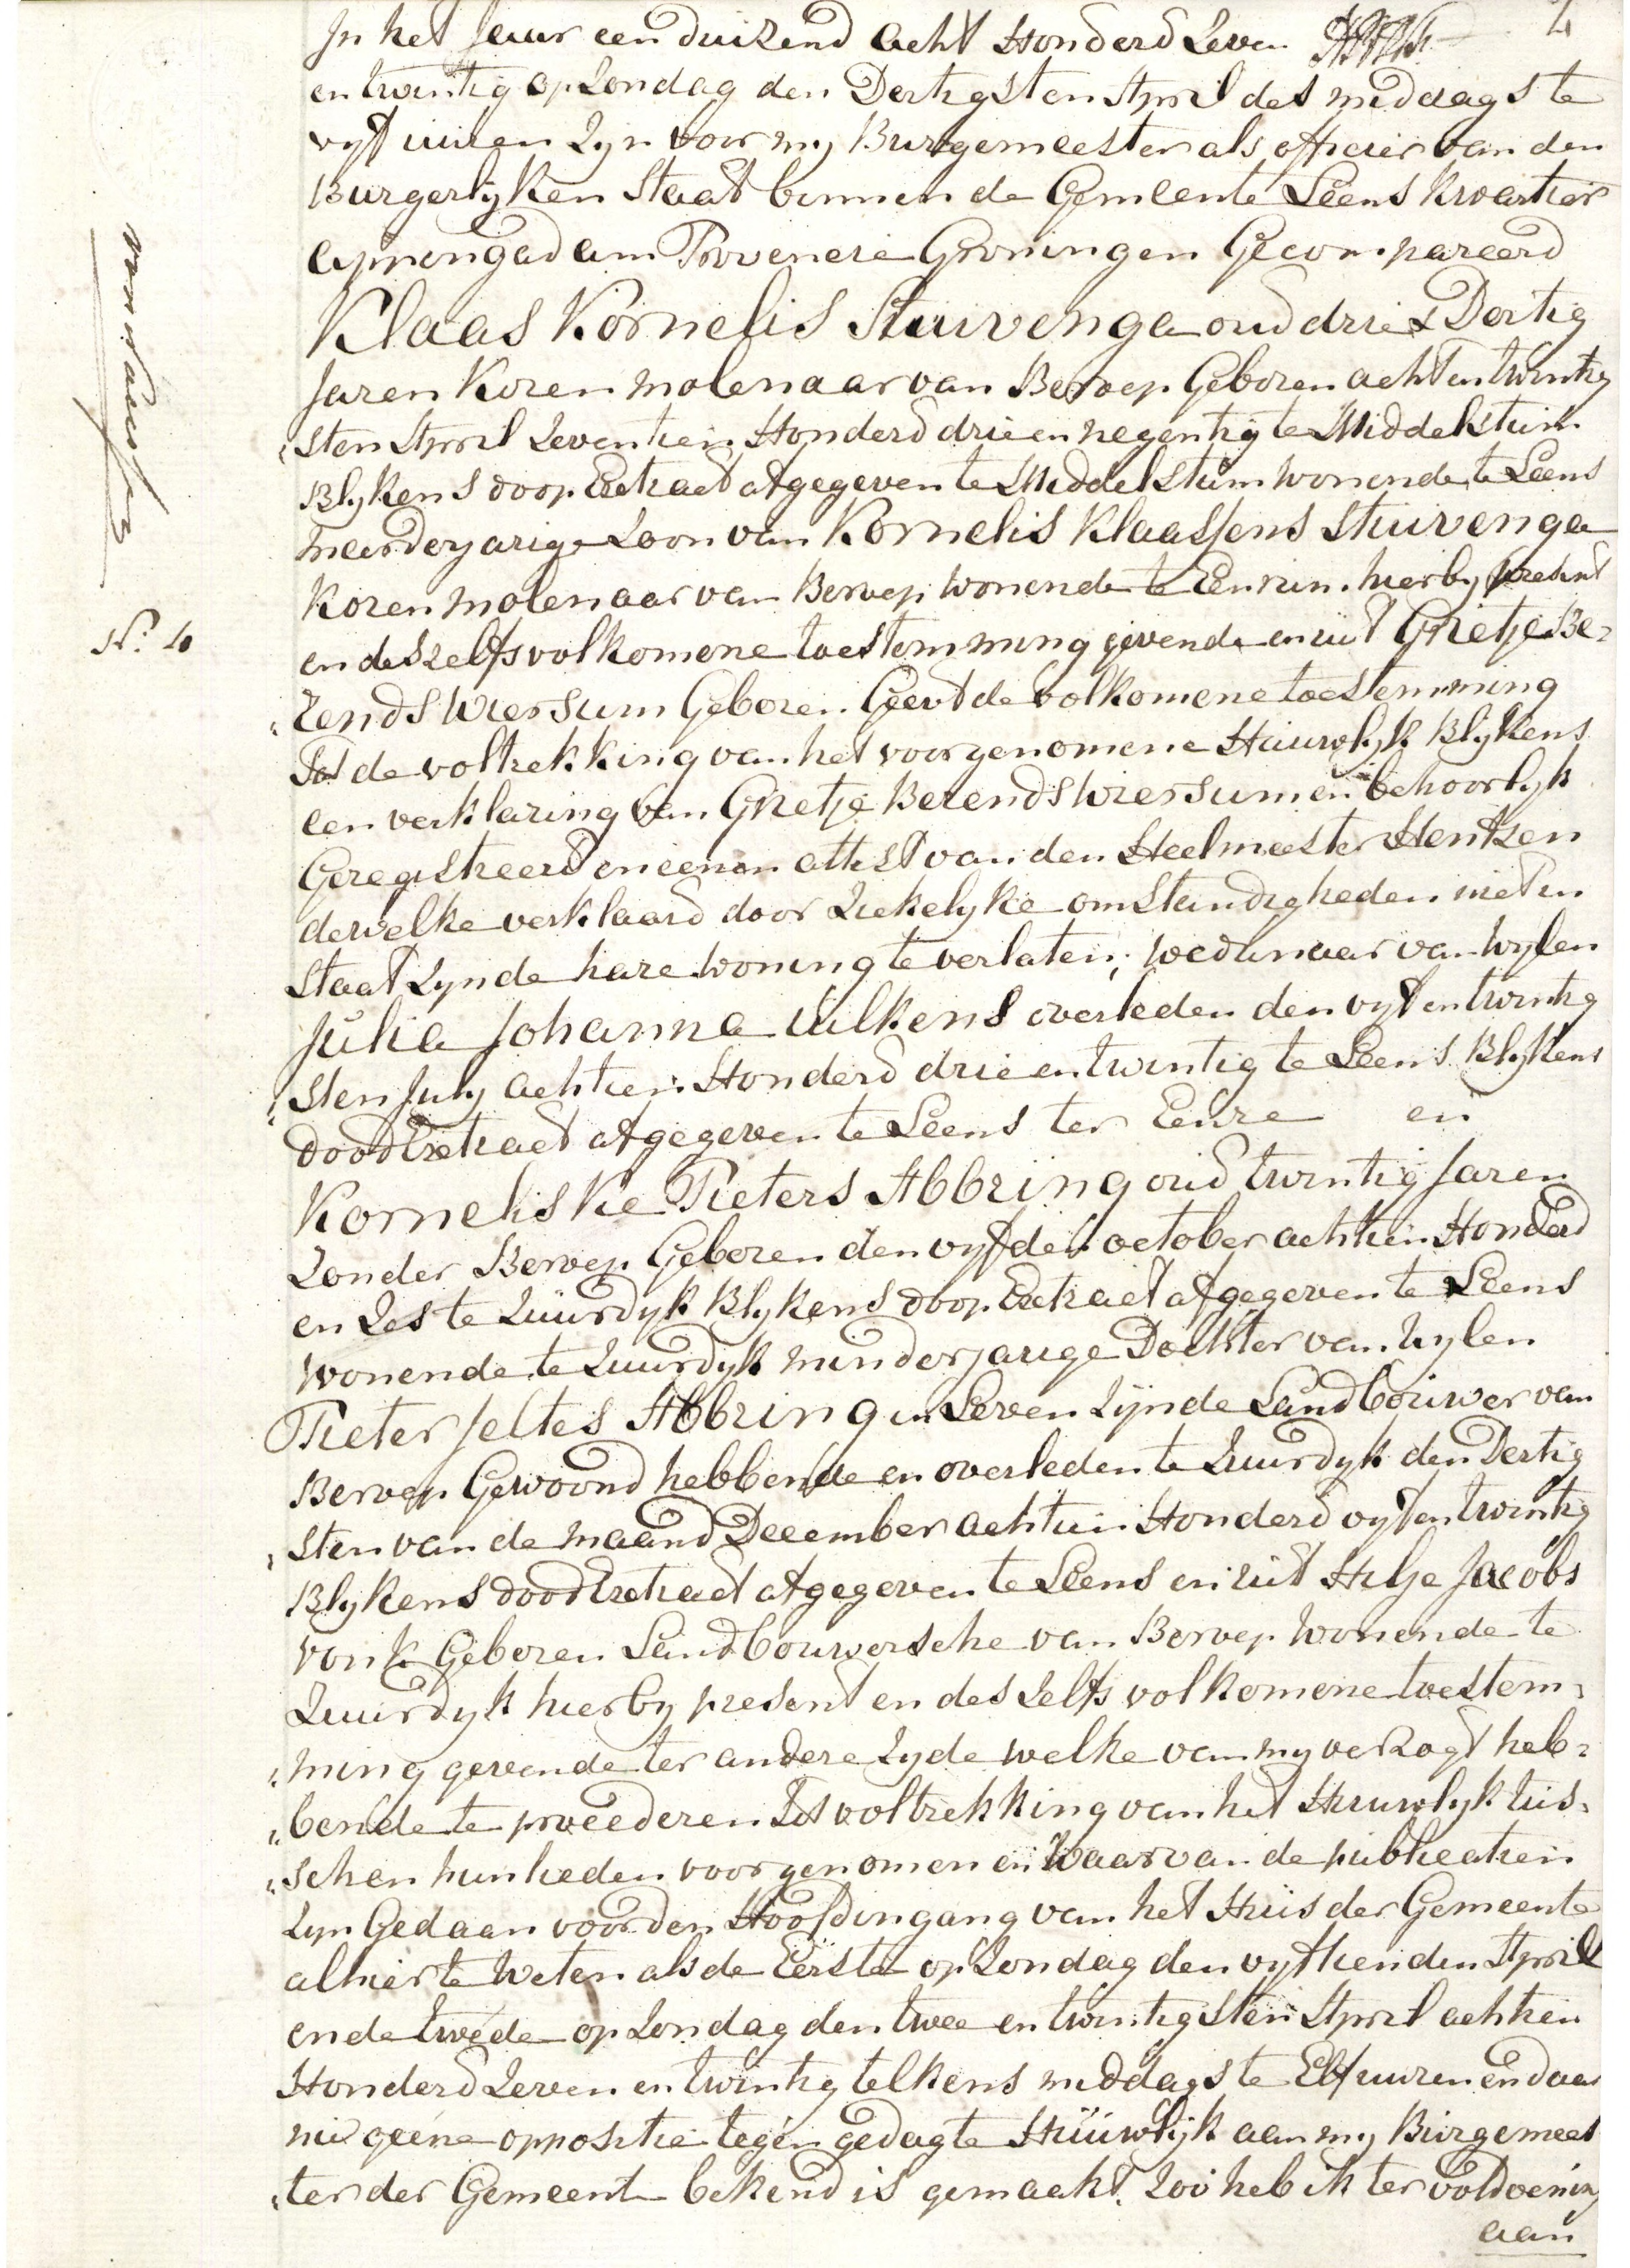 4
In het Jaar een duizend acht Honderd Zeven
en twintig op Zondag den Dertigsten April des middags te
vyf uuren Zyn voor my Burgemeester als officier van den
Burgerlyken Staat binnen de Gemeente Leens kwartier
Appingadam Provencie Groningen Gecompareerd
Klaas Kornelis Stuivenga oud drie & Dertig
Jaren Koren molenaar van Beroep Geboren acht en twintig
„sten April Zeventien Honderd drie en negentig te Middelstum
Blykens doop Extract afgegeven te Middelstum wonende te Leens
meerderjarige Zoon van Kornelis Klaassens Stuivenga
Koren molenaar van Beroep wonende te Eenrum hierby present
en deszelfs volkomene toestemming gevende en uit Grietje Be„
„rends Wiersum Geboren Geevt de volkomene toestemming
Tot de voltrekking van het voorgenomene Huuwlyk Blykens
een verklaring van Grietje Berends Wiersum en behoorlyk
Geregistreerd en eenen attest van den Heelmeester Hentzen
dewelke verklaard door Ziekelyke omstandigheden niet in
staat Zynde hare woning te verlaten; wedunaar van wylen
Julia Johanna Uilkens overleden den vyf en twintig
„sten July achtien Honderd drie en twintig te Leens Blykens
dood Extract afgegeven te Leens ter Eenre en
Korneliske Pieters Abbring oud twintig Jaren
Zonder Beroep Geboren den vyfden october achtien Honderd
en Zes te Zuurdyk Blykens doop Extract afgegeven te Leens
wonende te Zuurdyk minderjarige Dochter van wylen
Pieter Jeltes Abbring in Leven Zynde Landbouwer van
Beroep Gewoond hebbende en overleden te Zuurdyk den Dertig
„sten van de maand December achtien Honderd vyf en twintig
Blykens dood Extract afgegeven te Leens en uit Hilje Jacobs
Vonk Geboren Landbouwersche van Beroep wonende te
Zuurdyk hierby present en deszelfs volkomene toestem„
„ming gevende ter andere Zyde welke van my verzogt heb„
„bende te proceederen Tot voltrekking van het Huuwlyk tus„
„schen hun lieden voorgenomen en waarvan de publicatien
Zyn Gedaan voor den Hoofdingang van het Huis der Gemeente
alhier te weten als de Eerste op Zondag den vyftienden April
en de twede op Zondag den twee en twintigsten April achtien
Honderd Zeven en twintig telkens middags te Elf uuren en daar
nu geene oppositie tegen gedagte Huuwlyk aan my Burgemees
„ter der Gemeent bekend is gemaakt. Zoo heb ik ter voldoening
aan
No. 4